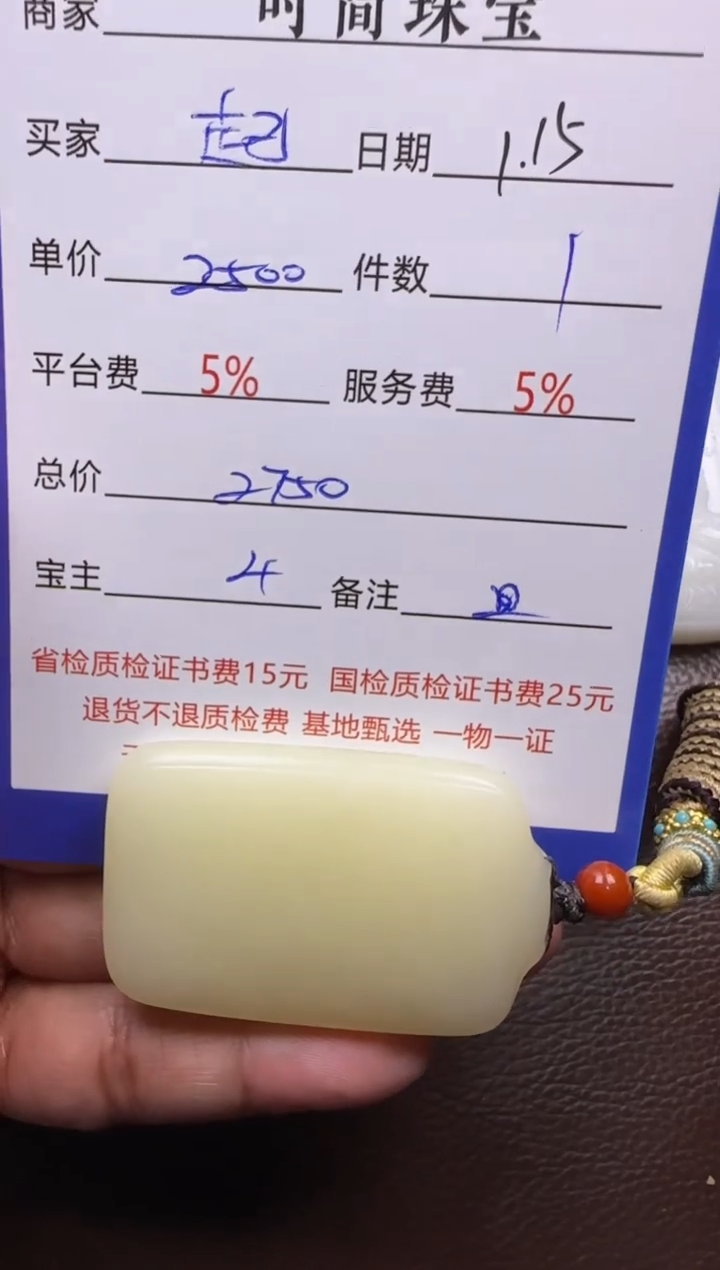 商家 时间珠宝
买家 起 日期 1.15
单价 2500 件数 1
平台费 5% 服务费 5%
总价 2750
宝主 4 备注
省检质检证书费15元 国检质检证书费25元
退货不退质检费 基地甄选 一物一证